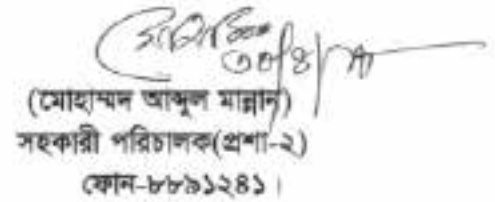 ৩০/৪/
(মোহাম্মদ আব্দুল মান্নান)
সহকারী পরিচালক(প্রশা-২)
ফোন-৮৮৯১২৪১।